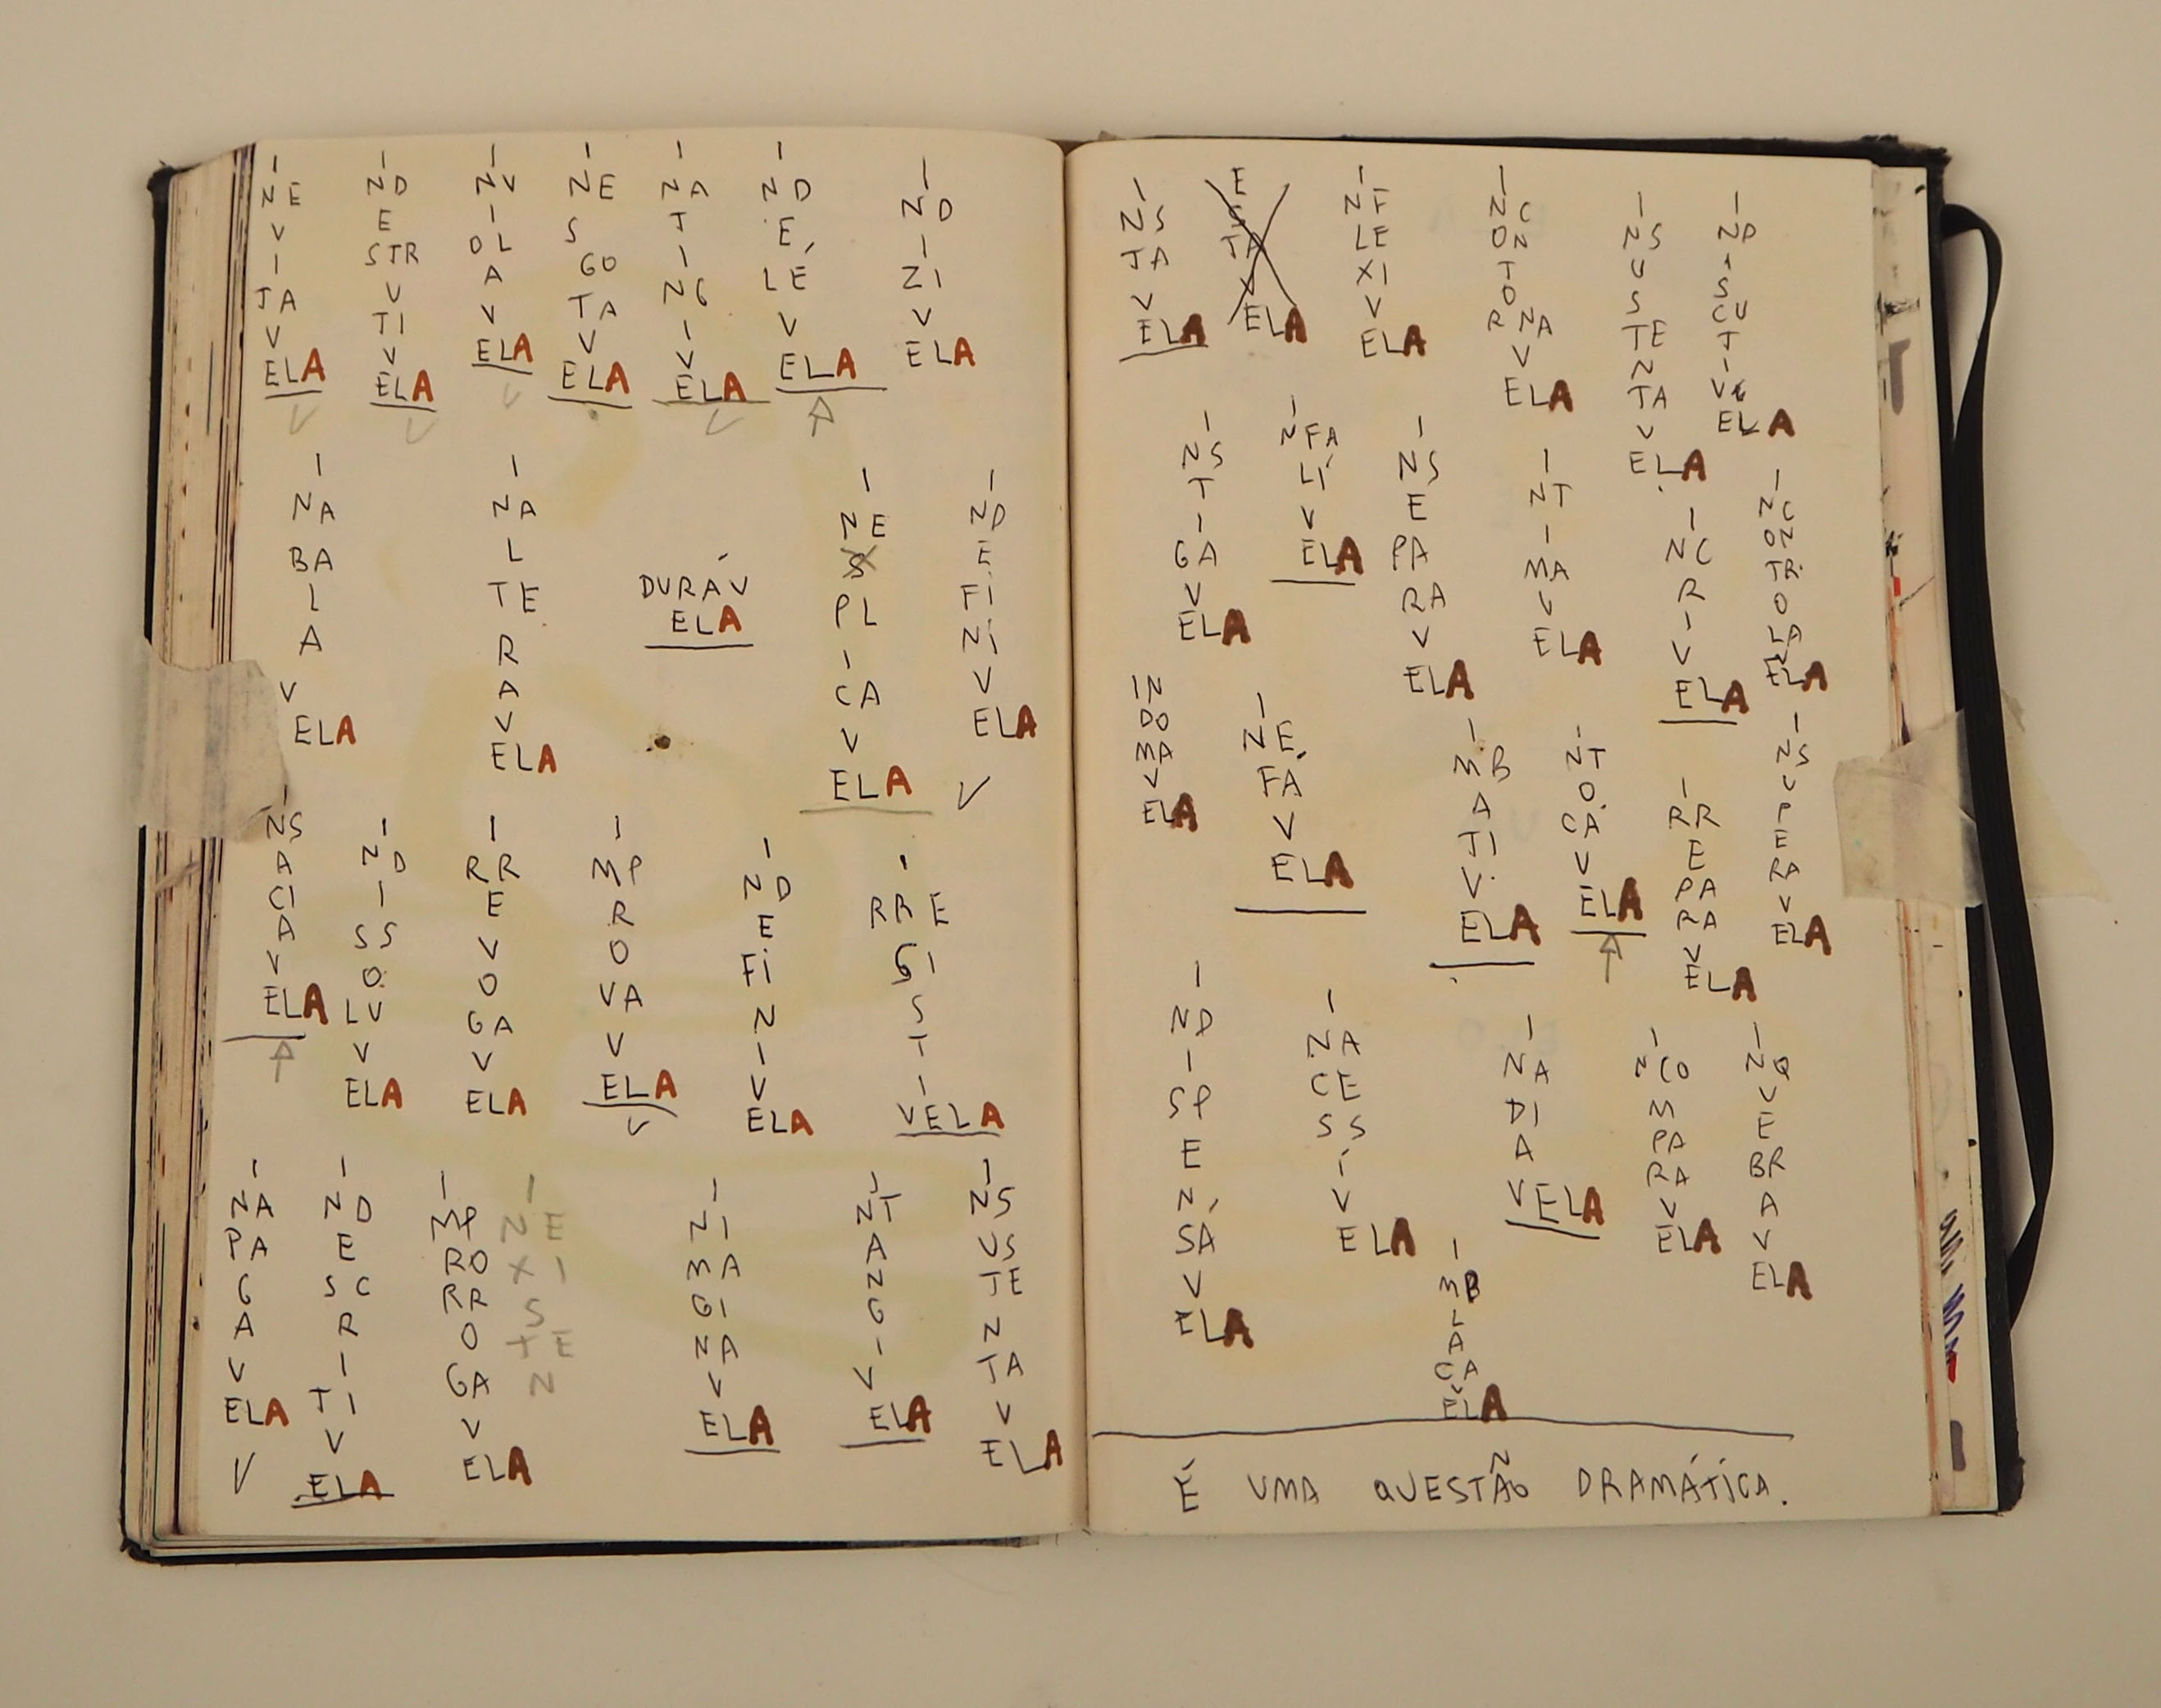 I
NE
V
I
TA
V
ELA
I
ND
E
STR
U
TI
V
ELA
I
NV
I
OL
A
V
ELA
I
NE
S
GO
TA
V
ELA
I
NA
T
I
NG
I
V
ELA
I
ND
E
LÉ
V
ELA
I
ND
I
ZI
V
ELA
I
NA
BA
L
A
V
ELA
I
NA
L
TE
R
A
V
ELA
DURÁV
ELA
I
NE
X
PL
I
CA
V
ELA
I
ND
E
FI
NI
V
ELA
I
NS
A
CI
A
V
ELA
I
ND
I
SS
O
LU
V
ELA
I
RR
E
V
O
GA
V
ELA
I
MP
R
O
VA
V
ELA
I
ND
E
FI
N
I
V
ELA
I
RR E
GI
S
T
I
VELA
I
NA
PA
G
A
V
ELA
I
ND
E
SC
R
I
TI
V
ELA
I
MP
RO
RR
O
GA
V
ELA
I
N E
X I
S
T E
N
I
NI
MA
GI
NA
V
ELA
I
NT
A
N
G
I
V
ELA
I
NS
US
TE
N
TA
V
ELA
I
NS
TA
V
ELA
E
ELA
I
NF
LE
XI
V
ELA
I
NC
ON
T
O
R NA
V
ELA
I
NS
U
S
TE
N
TA
V
ELA
I
ND
I
S
CU
T
I
V
ELA
I
NS
T
I
GA
V
ELA
I
NFA
LÍ
V
ELA
I
NS
E
PA
RA
V
ELA
I
NT
I
MA
V
ELA
I
NC
R
I
V
ELA
I
NC
ON
TR
O
LA
V
ELA
IN
DO
MA
V
ELA
I
NE
FÁ
V
ELA
I
MB
A
TI
V
ELA
I
NT
O
CÁ
V
ELA
I
RR
E
PA
RA
V
ELA
I
NS
U
P
E
RA
V
ELA
I
ND
I
SP
E
N
SÁ
V
ELA
I
NA
CE
SS
Í
V
ELA
I
NA
DI
A
VELA
I
NCO
M
PA
RA
V
ELA
I
NQ
U
E
BR
A
V
ELA
I
MP
L
A
CA
V
ELA
É UMA QUESTÃO DRAMÁTICA.